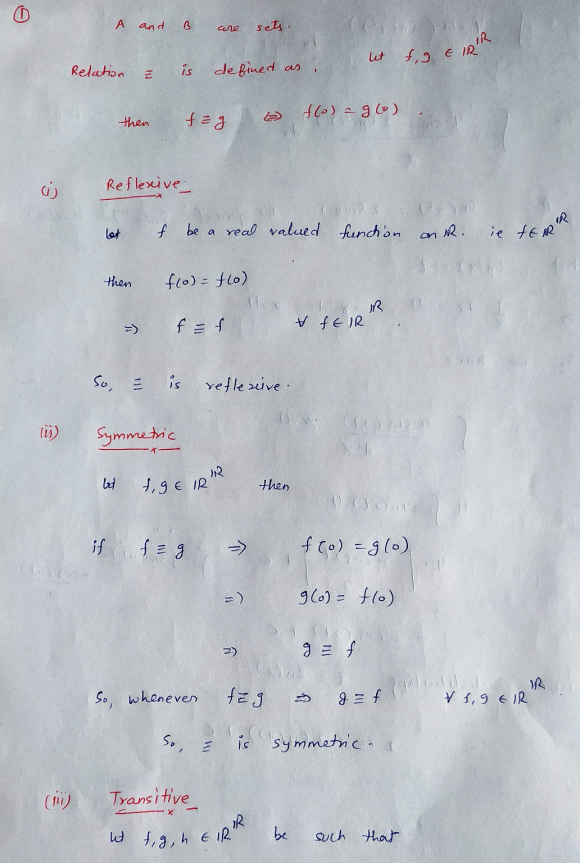 ①
A and B are sets.
Relation ≡ is defined as, let f,g ∈ ℝ^ℝ
then f ≡ g ⇔ f(0) = g(0).
(i) Reflexive
let f be a real valued function on ℝ. ie f ∈ ℝ^ℝ
then f(0) = f(0)
⇒ f ≡ f ∀ f ∈ ℝ^ℝ.
So, ≡ is reflexive.
(ii) Symmetric
let f,g ∈ ℝ^ℝ then
if f ≡ g ⇒ f(0) = g(0)
⇒ g(0) = f(0)
⇒ g ≡ f
So, whenever f ≡ g ⇒ g ≡ f ∀ f,g ∈ ℝ^ℝ.
So, ≡ is symmetric.
(iii) Transitive
let f,g,h ∈ ℝ^ℝ be such that